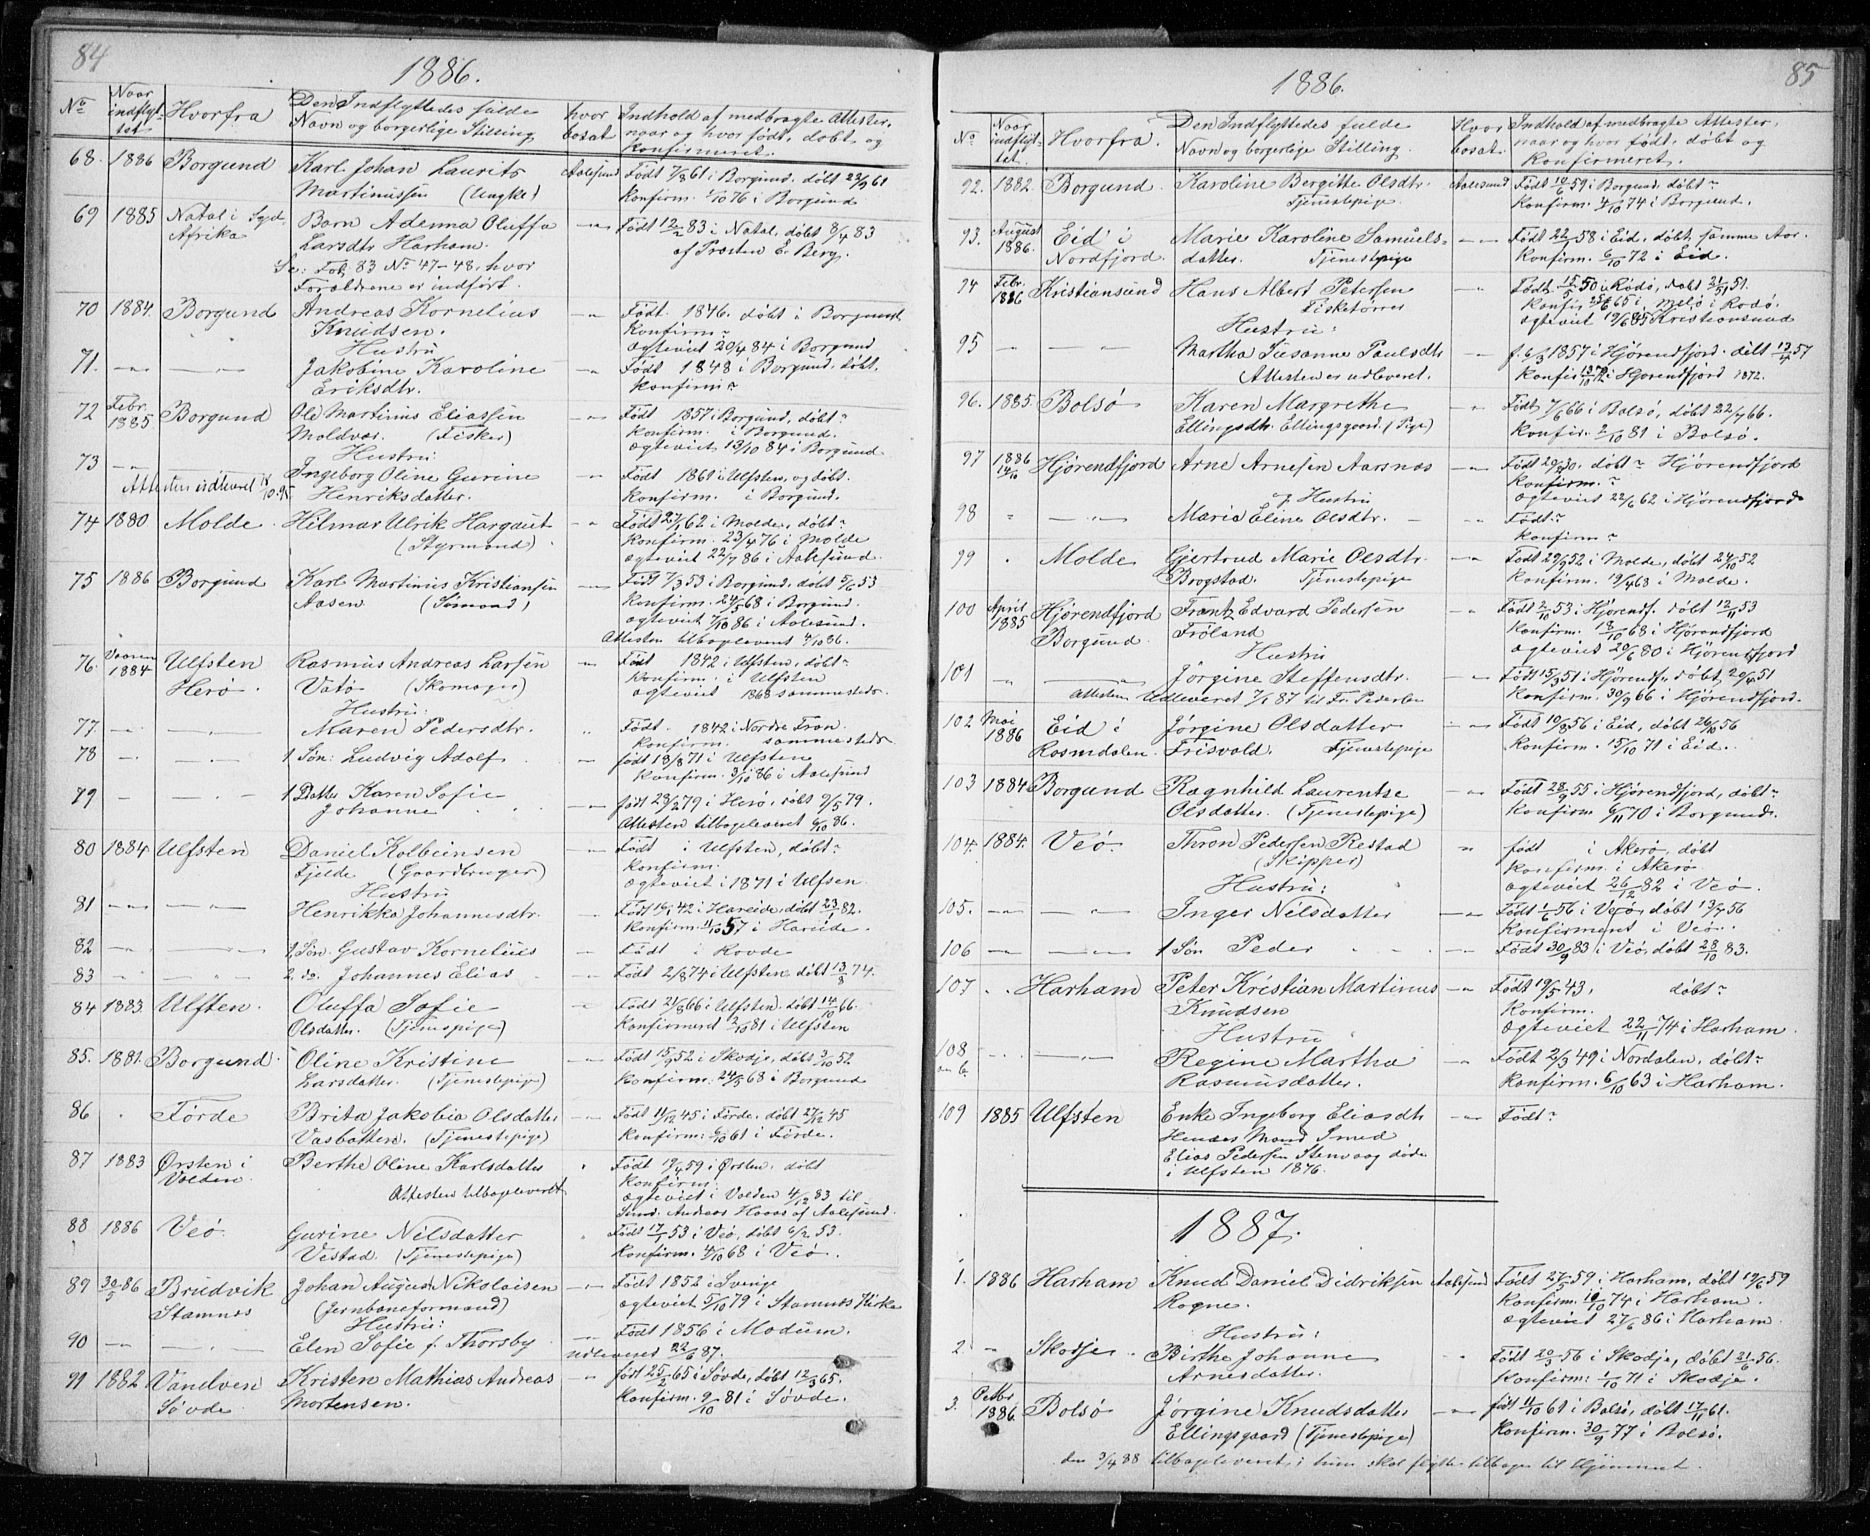 84
1886.
No
Naar indflyttet
Hvorfra
Den Indflyttedes fulde Navn og borgerlige Stilling
hvor bosat
Indhold af medbragte Attester, naar og hvor født, døbt og konfirmeret.
68. 1886 Borgund Karl Johan Laurits Aalesund Født 7/8 61 i Borgund, døbt 22/9 61
Martinussen (Ungk.) Konfirm. 1/10 76 i Borgund
69 1885 Natal i Syd- Barn Adenna Oluffa -"- Født 12/2 83 i Natal, døbt 8/4 83
Afrika Larsdtr Harham. af Prosten E. Berg.
Se: Fol. 83 No 47-48, hvor
Forældrene er indført.
70 1884. Borgund Andreas Kornelius Født 1846. døbt i Borgund
Knudsen. Konfirm ~
Hustru ægteviet 20/4 84 i Borgund
71. -"- -"- Jakobine Karoline -"- Født 1848 i Borgund, døbt.
Eriksdtr. Konfirm ~
72 Febr. 1885 Borgund Ole Martinus Eliassen -"- Født 1857 i Borgund, døbt ~
Moldvær. (Fisker) Konfirm. i Borgund.
Hustru ægteviet 13/10 84 i Borgund
73 -"- Ingeborg Oline Gurine -"- Født 1861 i Ulfsten, og døbt.
Attesten udleveret 10.95 Henriksdatter. Konfirm. i Borgund.
74 1880 Molde Hilmar Ulrik Hargaut -"- Født 27/1 62 i Molde, døbt ~
(Styrmand) Konfirm. 23/4 76 i Molde
ægteviet 22/7 86 i Aalesund
75 1886 Borgund Karl Martinus Kristiansen -"- Født 7/3 53 i Borgund, døbt 5/6 53
Aasen (Sømand) Konfirm. 24/5 68 i Borgund.
ægteviet 7/10 86 i Aalesund.
Attesten tilbageleveret 4/10 86.
76. Vaaren 1884 Ulfsten Rasmus Andreas Larsen -"- Født 1842 i Ulfsten, døbt ~
Herø. Vatø (Skomager) Konfirm. i Ulfsten
Hustru: ægteviet 1868 sammesteds.
77 -"- -"- Maren Pedersdtr. " Født 1842 i Nordre Fron.
Konfirm. sammesteds
78 -"- -"- 1 Søn: Ludvig Adolf -"- født 18/8 71 i Ulfsten
Konfirm. 3/10 86 i Aalesund
79 -"- -"- 1 Datter Karen Sofie -"- født 23/2 79 i Herø, døbt 9/5 79.
Johanne Attesten tilbageleveret 6/10 86.
80 1884 Ulfsten Daniel Kolbeinsen -"- Født i Ulfsten, døbt ~
Fjelde (Gaardbruger) Konfirm.
Hustru ægteviet i 1871 i Ulfsen.
81 -"- -"- Henrikka Johannesdtr. -"- Født 16/1 42 i Hareide, døbt 23/ 82.
Konfirm. 11/10 57 i Hareide.
82 -"- -"- 1 Søn. Gustav Kornelius - Født i Rovde
83 -"- -"- 2. do. Johannes Elias -"- Født 2/8 74 i Ulfsten, døbt 13/8 74.
84 1883 Ulfsten. Oluffa Sofie -"- Født 21/8 66 i Ulfsten. døbt 14/10 66.
Olsdatter. (Tjenespige) Konfirmeret 2/10 81 i Ulfsten
85. 1881. Borgund. Oline Kristine -"- Født 15/9 52 i Skodje, døbt 3/10 52
Larsdatter. (Tjenestepige) Konfirm: 24/5 68 i Borgund
86 . Førde Brita Jakobia Olsdatter -"- Født 11/12 45 i Førde, døbt 27/12 45
Vasbotten. (Tjenestepige) Konfirm: 6/10 61 i Førde.
87 1883 Ørsten i Berthe Oline Karlsdatter " Født 19/4 59 i Ørsten, døbt
Volden Konfirm:
Attesten tilbageleveret ægteviet i Volden 4/12 83 til
Smed. Andreas Haaes af Aalesund.
88 1886 Veø Gurine Nilsdatter " Født 17/1 53 i Veø, døbt 6/2 53.
Vestad. (Tjenestepige) Konfirm. 4/10 68 i Veø.
89 30/5 86 Brudvik Johan August Nikolaisen -"- Født 1852 i Sverige
Stamnes (Jernbaneformand) ægteviet 5/10 79 i Stamnes Kirke
Hustru:
90 -"- -"- Elen Sofie f. Thorsby -"- Født 1856 i Modum.
Udleveret 22/6 87.
91 1882 Vanelven Kristen Mathias Andreas -"- født 25/2 65 i Søvde, døbt 12/3 65.
Søvde Mortensen. Konfirm. 9/10 81 i Søvde.
85
1886.
No
Naar indflyttet
Hvorfra.
Den Indflyttedes fulde Navn og borgerlige Stilling.
Hvor bosat.
Indhold af medbragte Attester, naar og hvor født, døbt og konfirmeret.
92. 1882. Borgund. Karoline Bergitte Olsdtr. Aalesund Født 10/6 59 i Borgund, døbt ~
Tjenestepige. Konfirm. 4/10 74 i Borgund.
93. August 1886. Eid i Marie Karoline Samuels- -"- Født 22/7 58 i Eid, døbt samme Aar.
Nordfjord. datter. Tjenestepige Konfirm. 6/10 72 i Eid.
94 Febr. 1886 Kristiansund Hans Albert Petersen Født 15/5 50 i Rødø, døbt 21/4 51.
Fisketørrer Konfir. 25/6 65 i Melø i Rødø.
Hustru: ægteviet 19/6 85 Kristiansund
95 -"- -"- Martha Susanne Paulsdtr -"- f. 6/3 1857 i Hjørendfjord. døbt 13/4 57
(Attesten er udleveret. Konfir. 13/10 72 i Hjørendfjord 1872.
96. 1885. Bolsø Karen Margrethe -"- Født 7/6 66 i Bolsø, døbt 22/7 66.
Ellingsdtr. Ellingsgaard. (Pige) Konfir. 2/10 81 i Bolsø.
97 1886 14/10 Hjørendfjord Arne Arnesen Aarsnæs -"- Født 20/2 30. døbt ~ Hjørendfjord
Konfirm. ~
og Hustru ægteviet 22/6 62 i Hjørendfjord
98 " -"- Marie Eline Olsdtr. -"- Født ~
Konfirm ~
99 . Molde Gjertrud Marie Olsdtr. -"- Født 29/9 52 i Molde, døbt 24/10 52
Brogstad. Tjenestepige Konfirm. 19/4 68 i Molde.
100 April 1885 Hjørendfjord Frantz Edvard Pedersen -"- Født 2/10 53 i Hjørendf. døbt 12/11 53
Borgund Frøland Konfirm. 18/10 68 i Hjørendfjord
Hustru ægteviet 20/6 80 i Hjørendfjord
101 " -"- Jørgine Steffensdtr. -"- Født 15/3 51 i Hjørendf., døbt 20/4 51
Attesten Udleveret 7/1 87 til Fr. Pedersen Konfirm. 30/9 66 i Hjørendfjord.
102 Mai 1886 Eid i Jørgine Olsdatter -"- Født 10/8 56 i Eid, døbt 26/10 56
Rosmdalen. Frisvold. Tjenestepige Konfirm. 15/10 71 i Eid.
103 1884 Borgund Ragnhild Laurentse -"- Født 28/9 55 i Hjørendfjord, døbt ~
Olsdatter. (Tjenestepige) Konfirm 6/11 70 i Borgund.
104. 1884. Veø Thron Pedersen Restad " født i Akerø, døbt
(Skipper) Konfirm. i Akerø
Hustru: ægteviet 26/12 82 i Veø.
105. -"- -"- Inger Nilsdatter -"- Født 1/6 56 i Veø, døbt 13/7 56
Konfirmeret i Veø.
106 -"- -"- 1 Søn Peder -"- Født 30/9 83 i Veø, døbt 28/10 83.
107 . . Harham Peter Kristian Martinus -"- Født 19/5 43, døbt ~
Knudsen Konfirm.
Hustru ægteviet 22/11 74 i Harham.
108 -"- -"- Regine Martha -"- Født 2/3 49 i Nordalen, døbt ~
Rasmusdatter. Konfirm. 6/10 63 i Harham.
109 1885 Ulfsten Enke Ingeborg Eliasdtr -"- Født ~
Hendes Mand Smed
Elias Pedersen Stenvaag døde
i Ulfsten 1876.
1887.
1. 1886 Harham Knud Daniel Didriksen Aalesund Født 27/5 59 i Harham, døbt 19/6 59
Rogne. Konfirm. 10/10 74 i Harham.
Hustru: ægteviet 27/6 86 i Harham.
2. " Skodje. Birthe Johanne " Født 20/3 56 i Skodje, døbt 21/6 56.
Arnesdatter. Konfirm: 1/10 71 i Skodje.
3. Octbr 1886. Bolsø Jørgine Knudsdatter -"- født 11/10 61 i Bolsø, døbt 17/11 61.
Ellingsgaard (Tjenestepige) Konfirm. 30/9 77 i Bolsø.
den 3/4 88 tilbageleveret, hun skal flytte tilbage til Hjemmet.